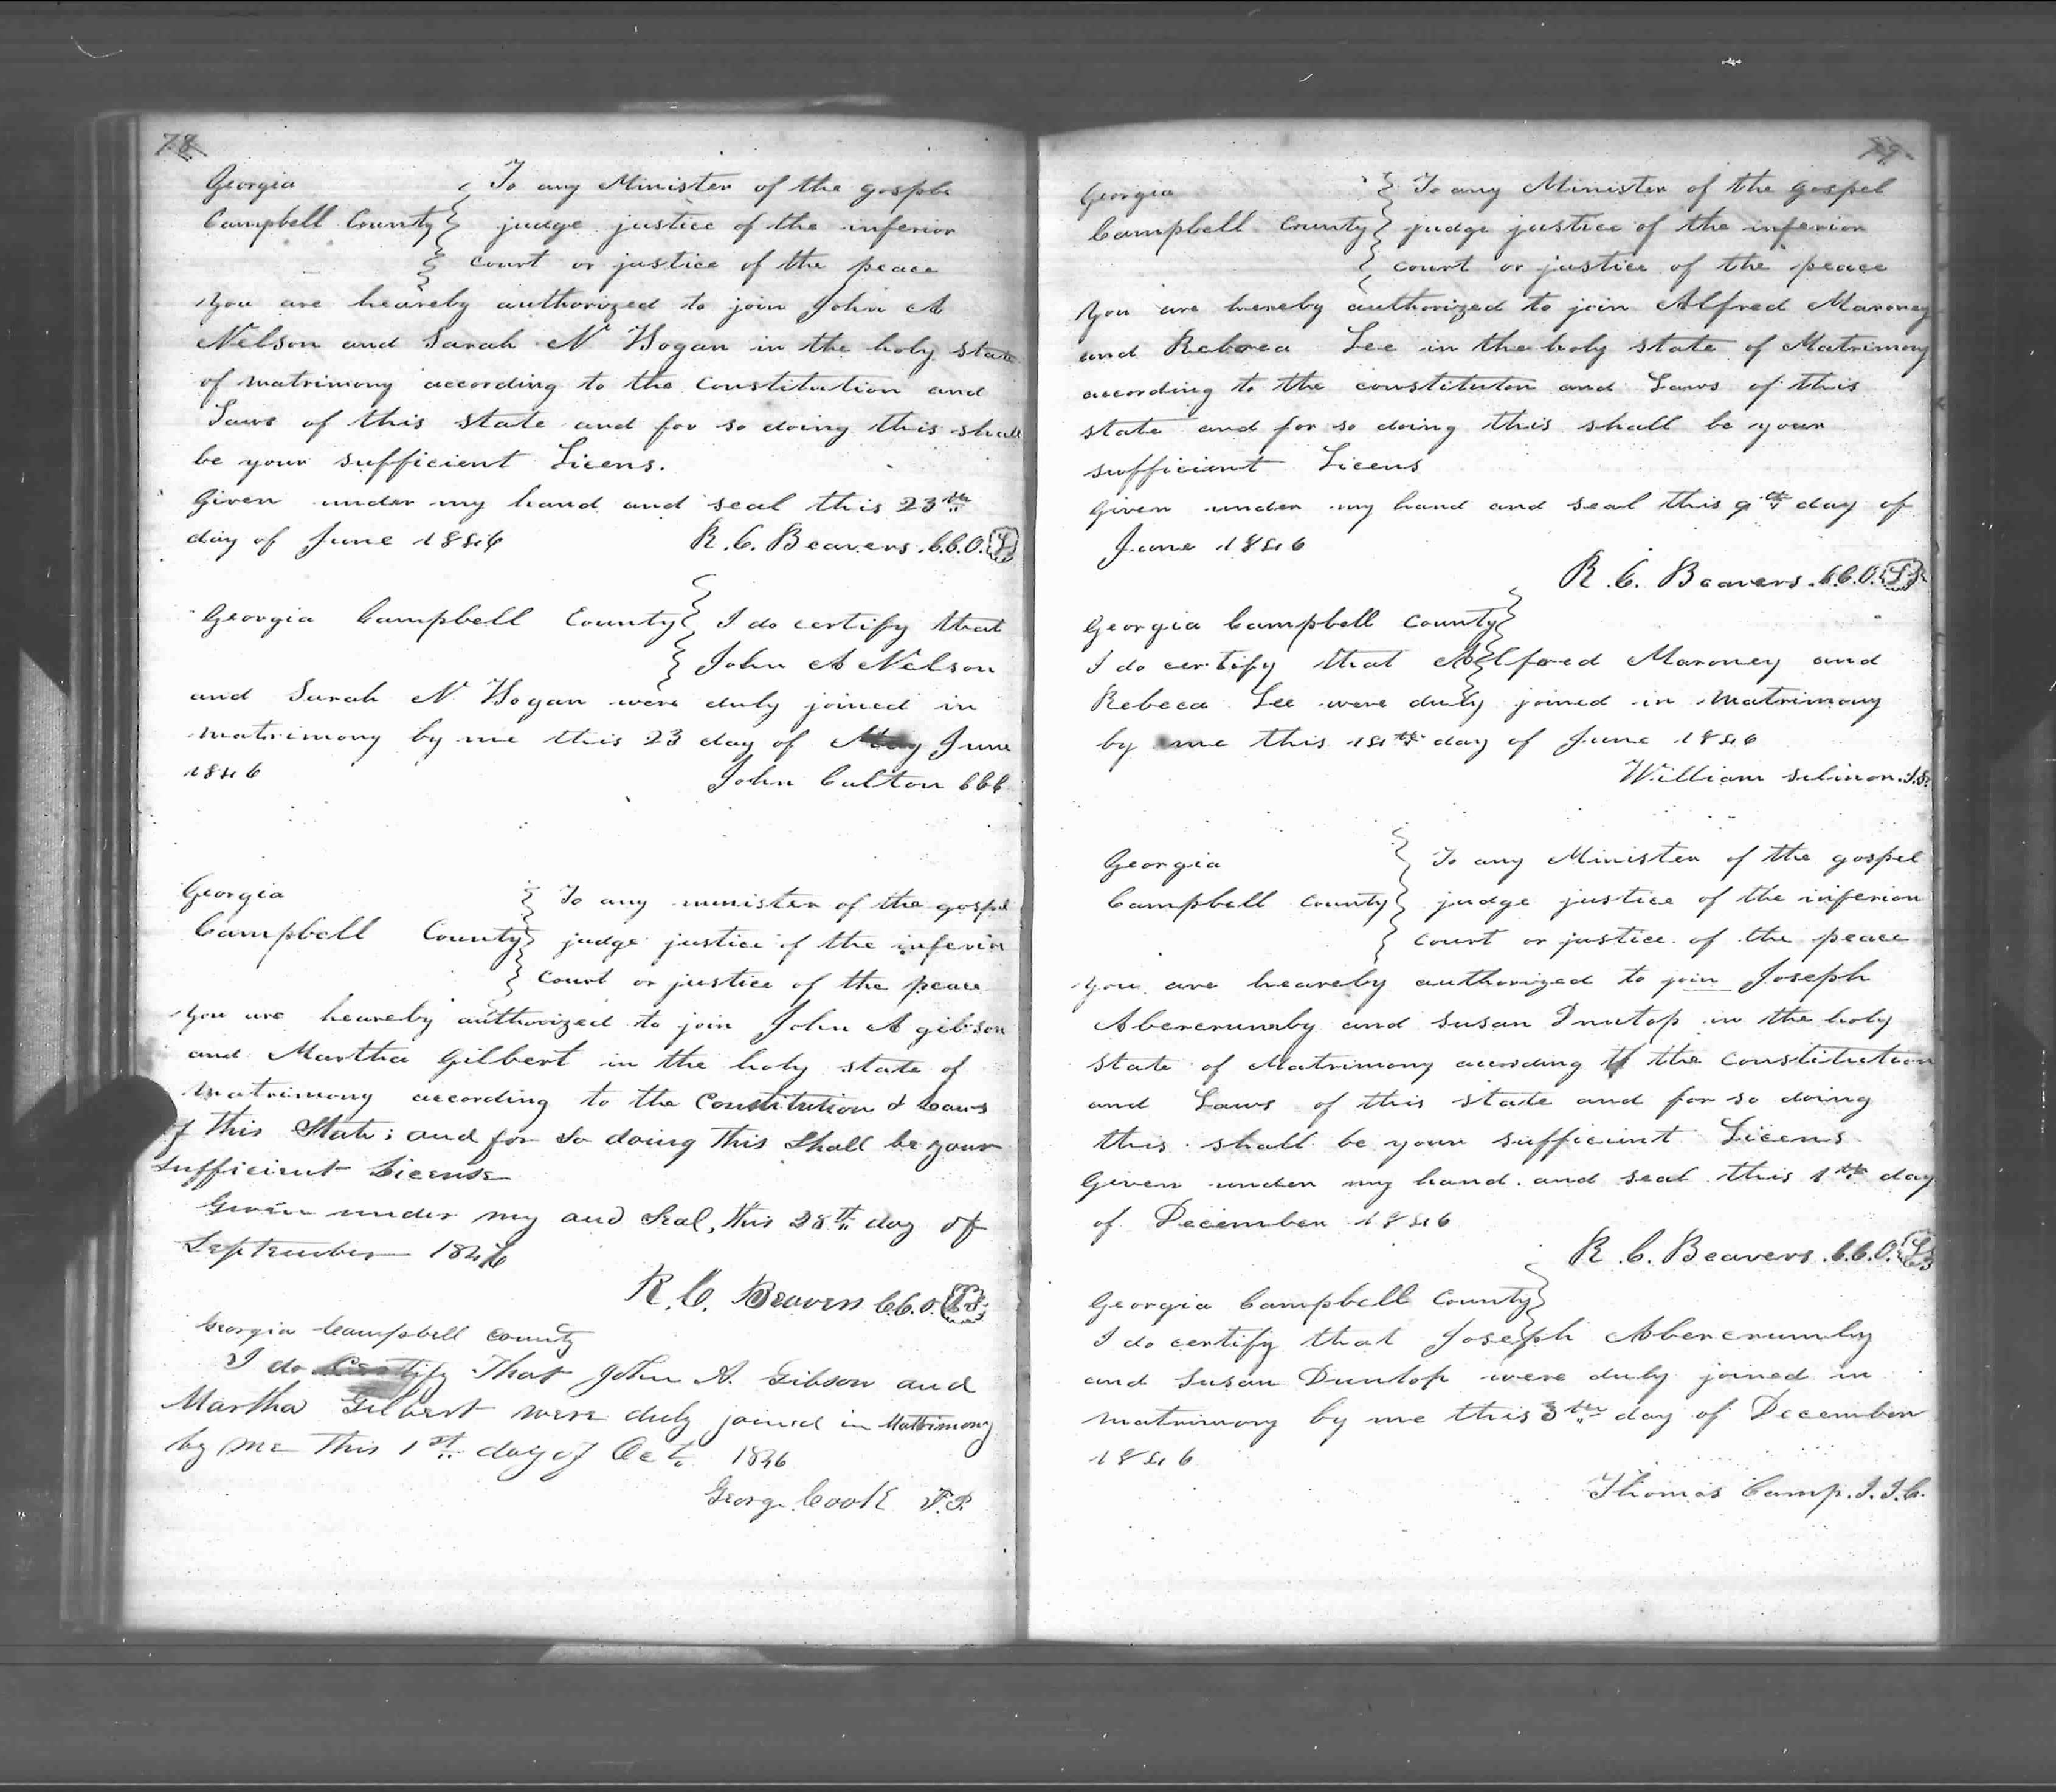 78
Georgia
Campbell County
To any Minister of the gosple
judge justice of the inferior
court or justice of the peace
you are heareby authorized to join John A
Nelson and Sarah N Hogan in the holy state
of matrimony according to the Constitution and
Laws of this state and for so doing this shall
be your sufficient Licens.
Given under my hand and seal this 23th
day of June 1846 R. C. Beavers. C.C.O.
Georgia Campbell County I do certify that
John A Nelson
and Sarah N Hogan were duly joined in
matrimony by me this 23 day of June
1846 John Culton
Georgia
Campbell County
To any minister of the gospel
judge justice of the inferior
court or justice of the peace
you are heareby authorized to join John A gibson
and Martha Gilbert in the holy state of
Matrimony according to the Constitution & Laws
of this State; and for so doing this shall be your
sufficient License
Given under my and Seal, this 28th day of
September 1846
R. C. Beavers C.C.O. L.S.
Georgia Campbell county
I do Certify That John A. Gibson and
Martha Gilbert were duly joined in Matrimony
by me This 1st day of Oct. 1846
Georg. Cook J.P.
79
Georgia
Campbell County
To any Minister of the gospel
judge justice of the inferior
court or justice of the peace
you are hereby authorized to join Alfred Maroney
and Rebeca Lee in the holy state of Matrimony
according to the constituton and Laws of this
state and for so doing this shall be your
sufficient Licens
Given under my hand and seal this 9th day of
June 1846
R. C. Beavers. C.C.O. L.S.
Georgia Campbell County
I do certify that Alfred Maroney and
Rebeca Lee were duly joined in Matrimony
by me this day of June 1846
William
Georgia
Campbell County
To any Minister of the gospel
judge justice of the inferior
court or justice of the peace
you are heareby authorized to join Joseph
Abercrumby and Susan Dunlop in the holy
state of Matrimony according to the Constitution
and Laws of this state and for so doing
this shall be your sufficient Licens
Given under my hand and seal this 1th day
of December 1846
R. C. Beavers. C.C.O. L.S.
Georgia Campbell County
I do certify that Joseph Abercrumby
and Susan Dunlop were duly joined in
matrimony by me this 3th day of December
1846
Thomas Camp. J.I.C.